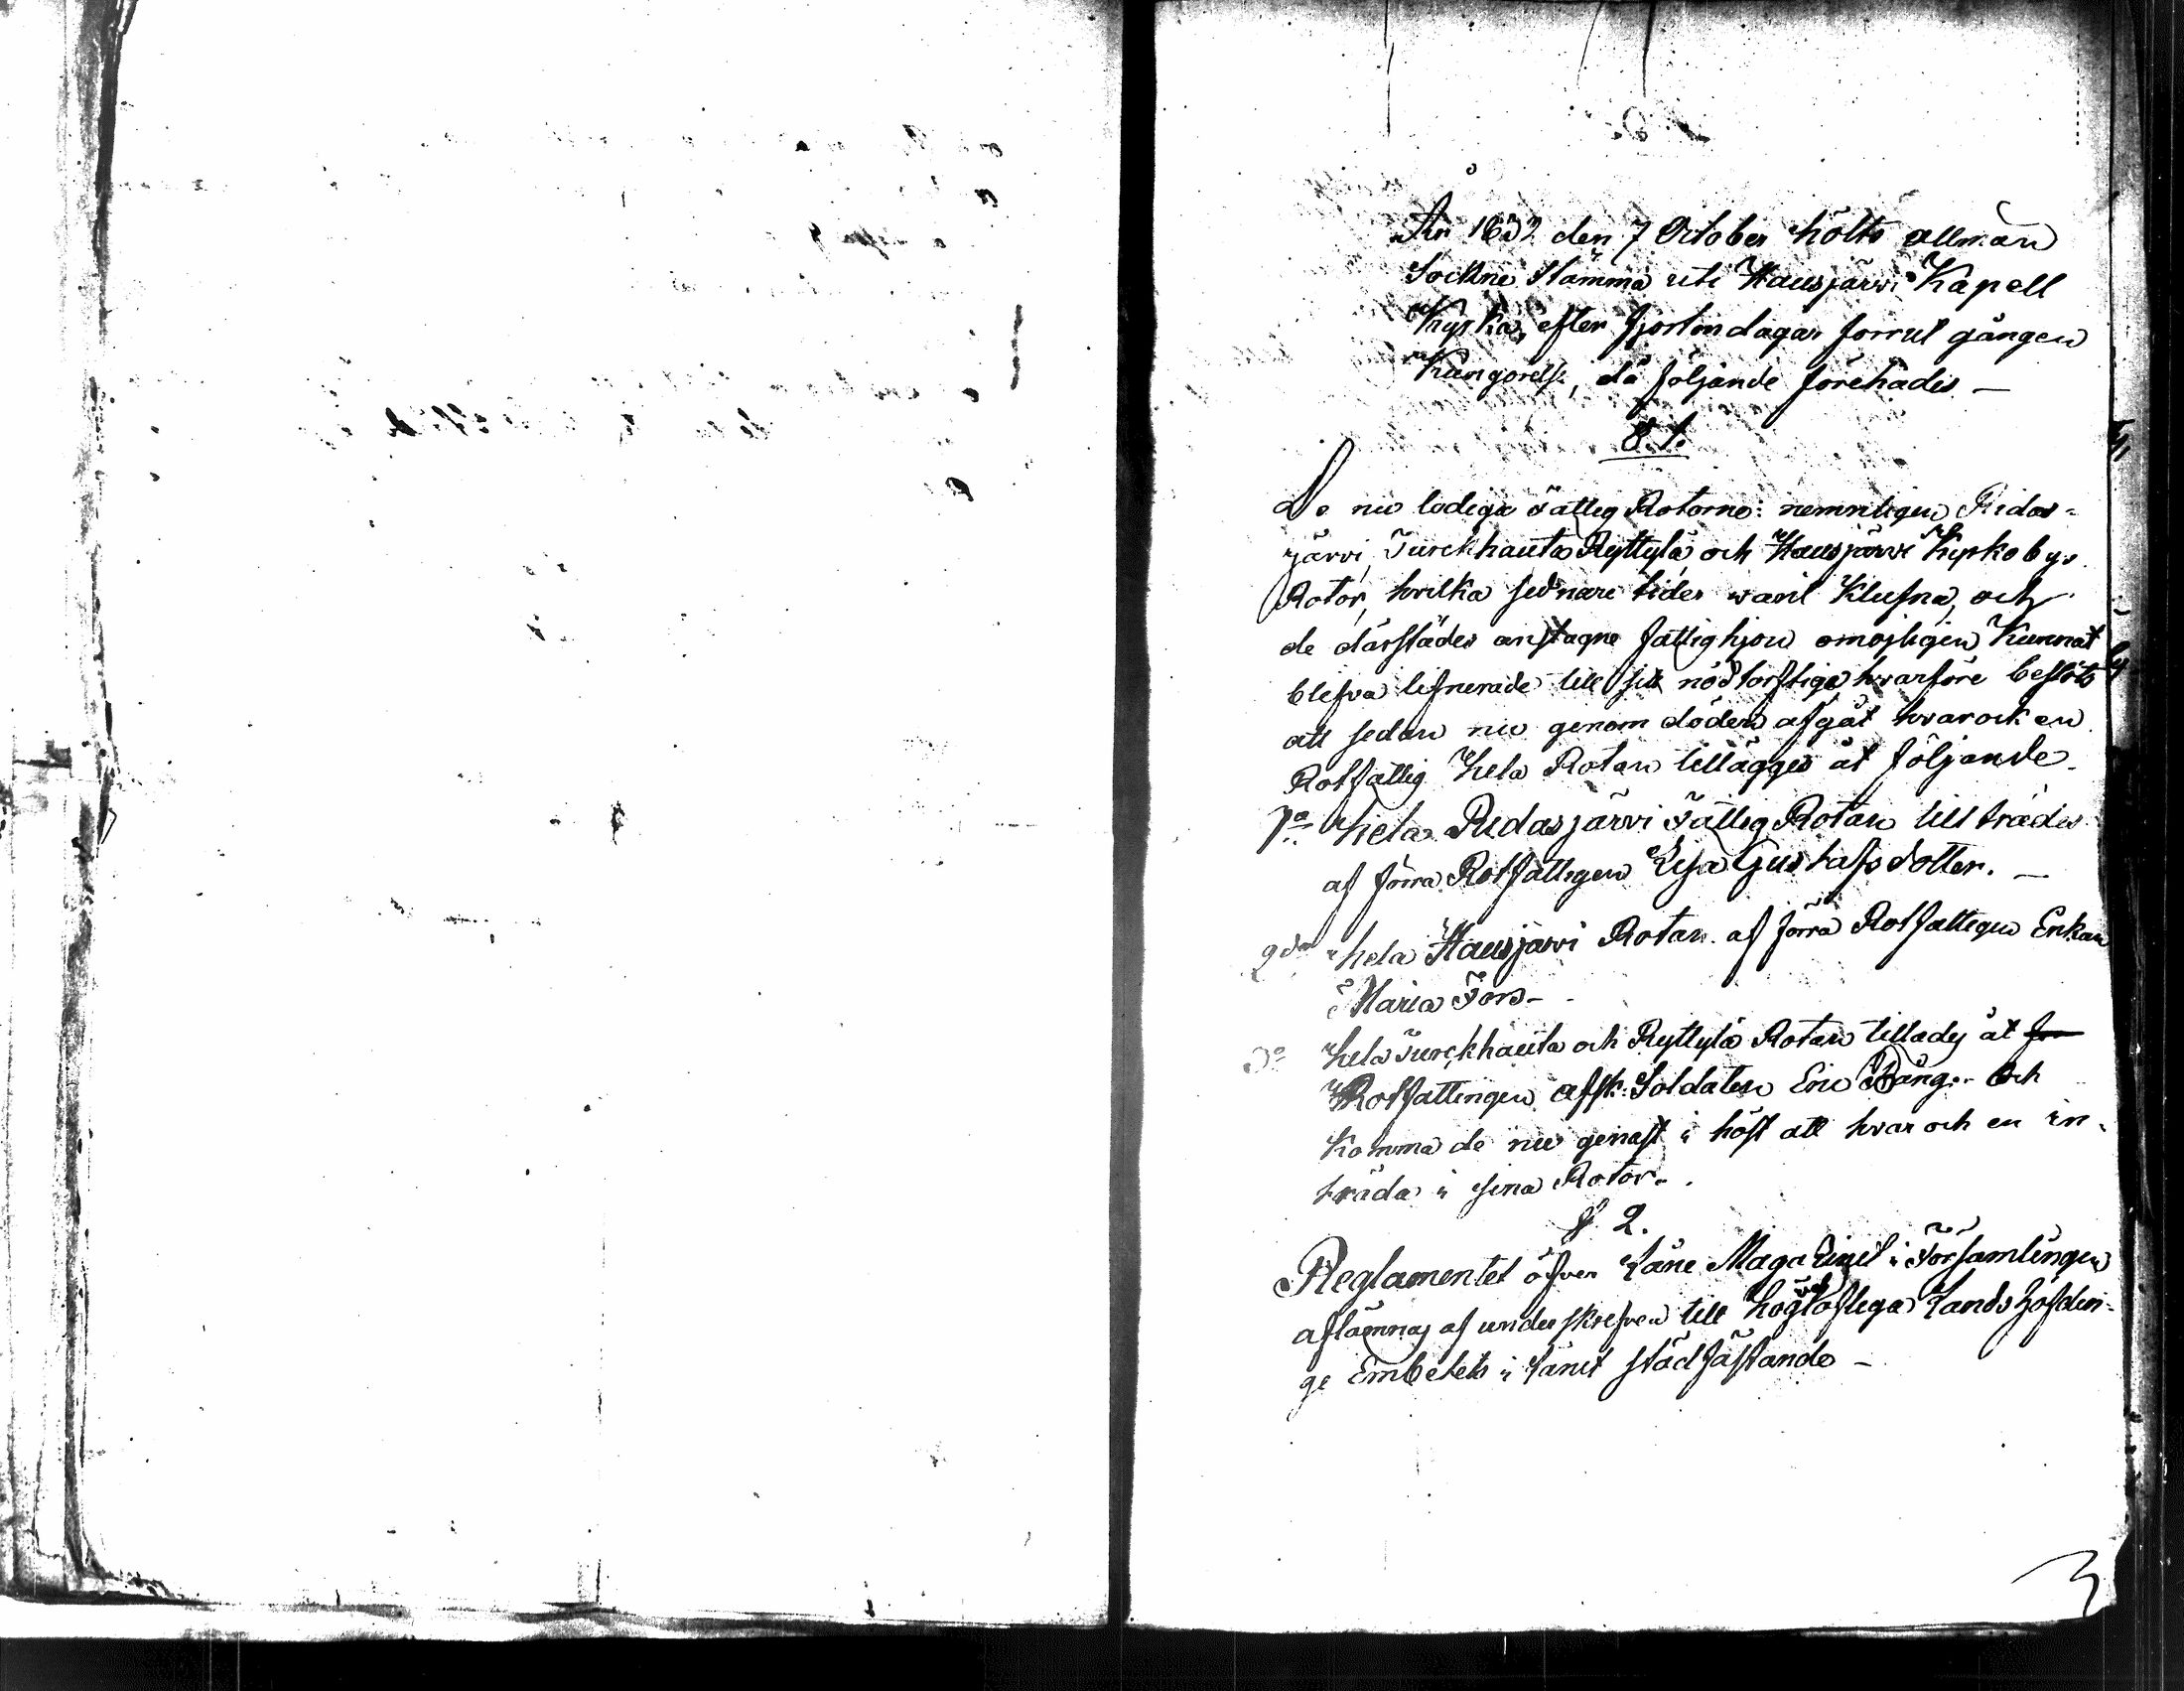 År 1832 den 7 October hölts allmän
Sockne Stämma uti Hausjärvi Kapell
Kyrka, efter fjorton dagar forrut gången
Kungorelse, då följande förehades —
§. 1.
De nu lediga Fattig Rotorne: nemnligen Ridas-
järvi, Turckhauta Ryttylä, och Hausjärvi Kyrkobys
Rotor, hvilka sednare tider varit Klufna, och
de därstädes anstagne fattighjon omöjligen Kunnat
blefva lifnerade till sitt nödtorftiga, hvarföre beslöts
att sedan nu genom döden afgåt hvar ock en
Rotfattig hela Rotan tillägges åt följande.
1o hela Ridasjärvi Fattig Rotan tillträdes
af förra Rotfattigen Lisa Gustafsdotter. —
2do hela Hausjärvi Rotan af förra Rotfattigen Enkan
Maria Fors-
3o hela Turckhauta och Ryttylä Rotan tillades åt
Rotfattingen afsk: Soldaten Eric Bång.- Och
Komma de nu genast i höst att hvar och en in-
träda i sina Rotor-.
§ 2.
Reglamentet öfver Låne Magazinet i Församlingen
aflämnas af underskrefven till höglofliga Landshöfdin-
ge Embetets i Länet stadfästande —
3